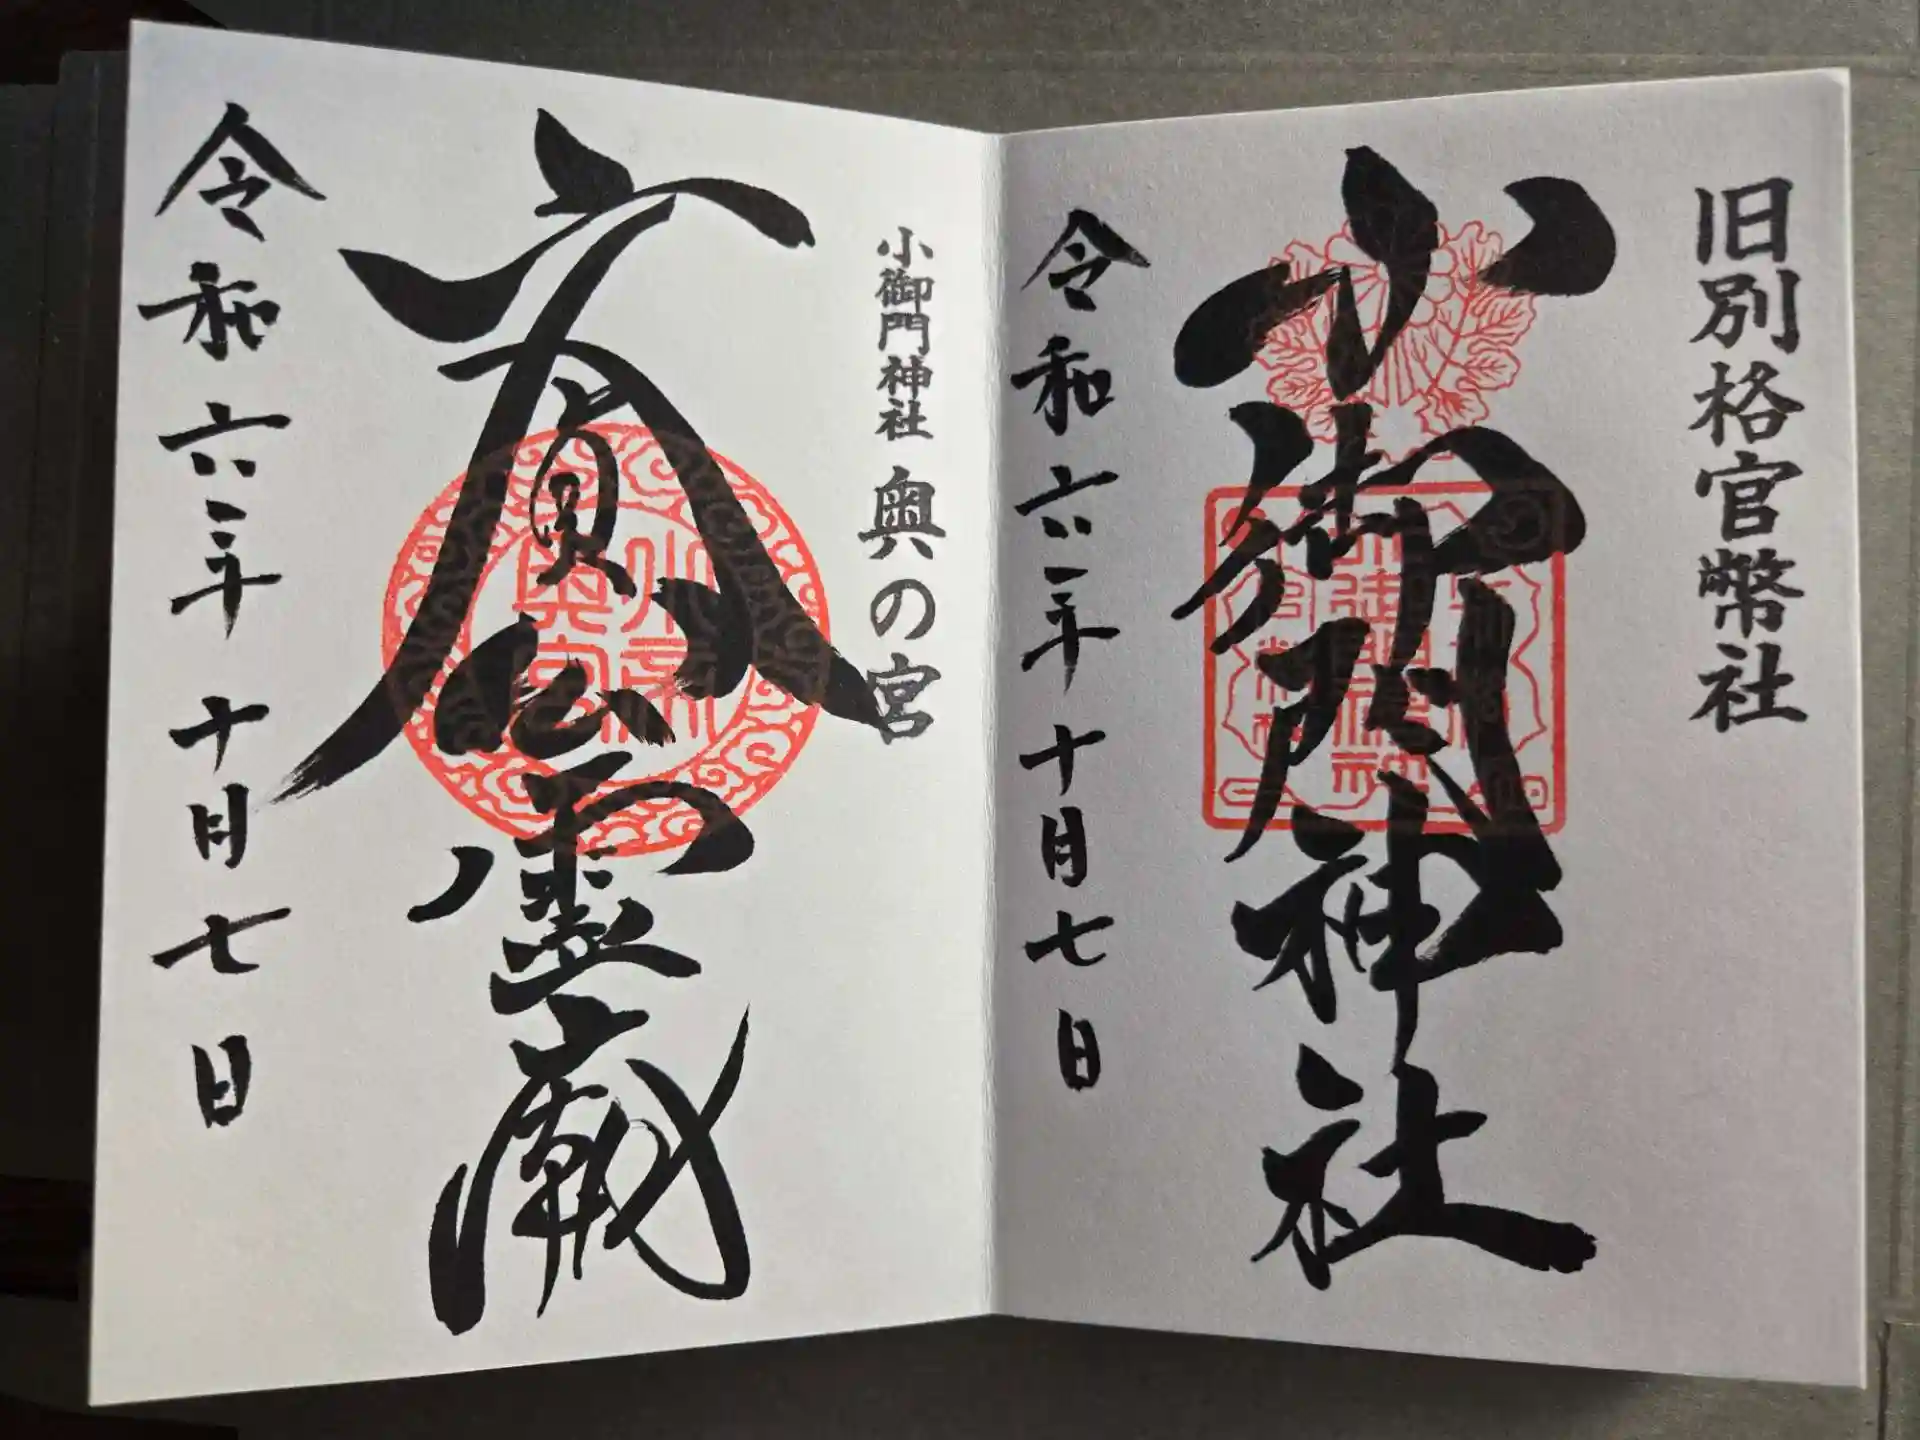 旧別格官幣社
小御門神社
令和六年十月七日
小御門神社 奥の宮
文貞公霊
令和六年十月七日
小御門神社
奥宮